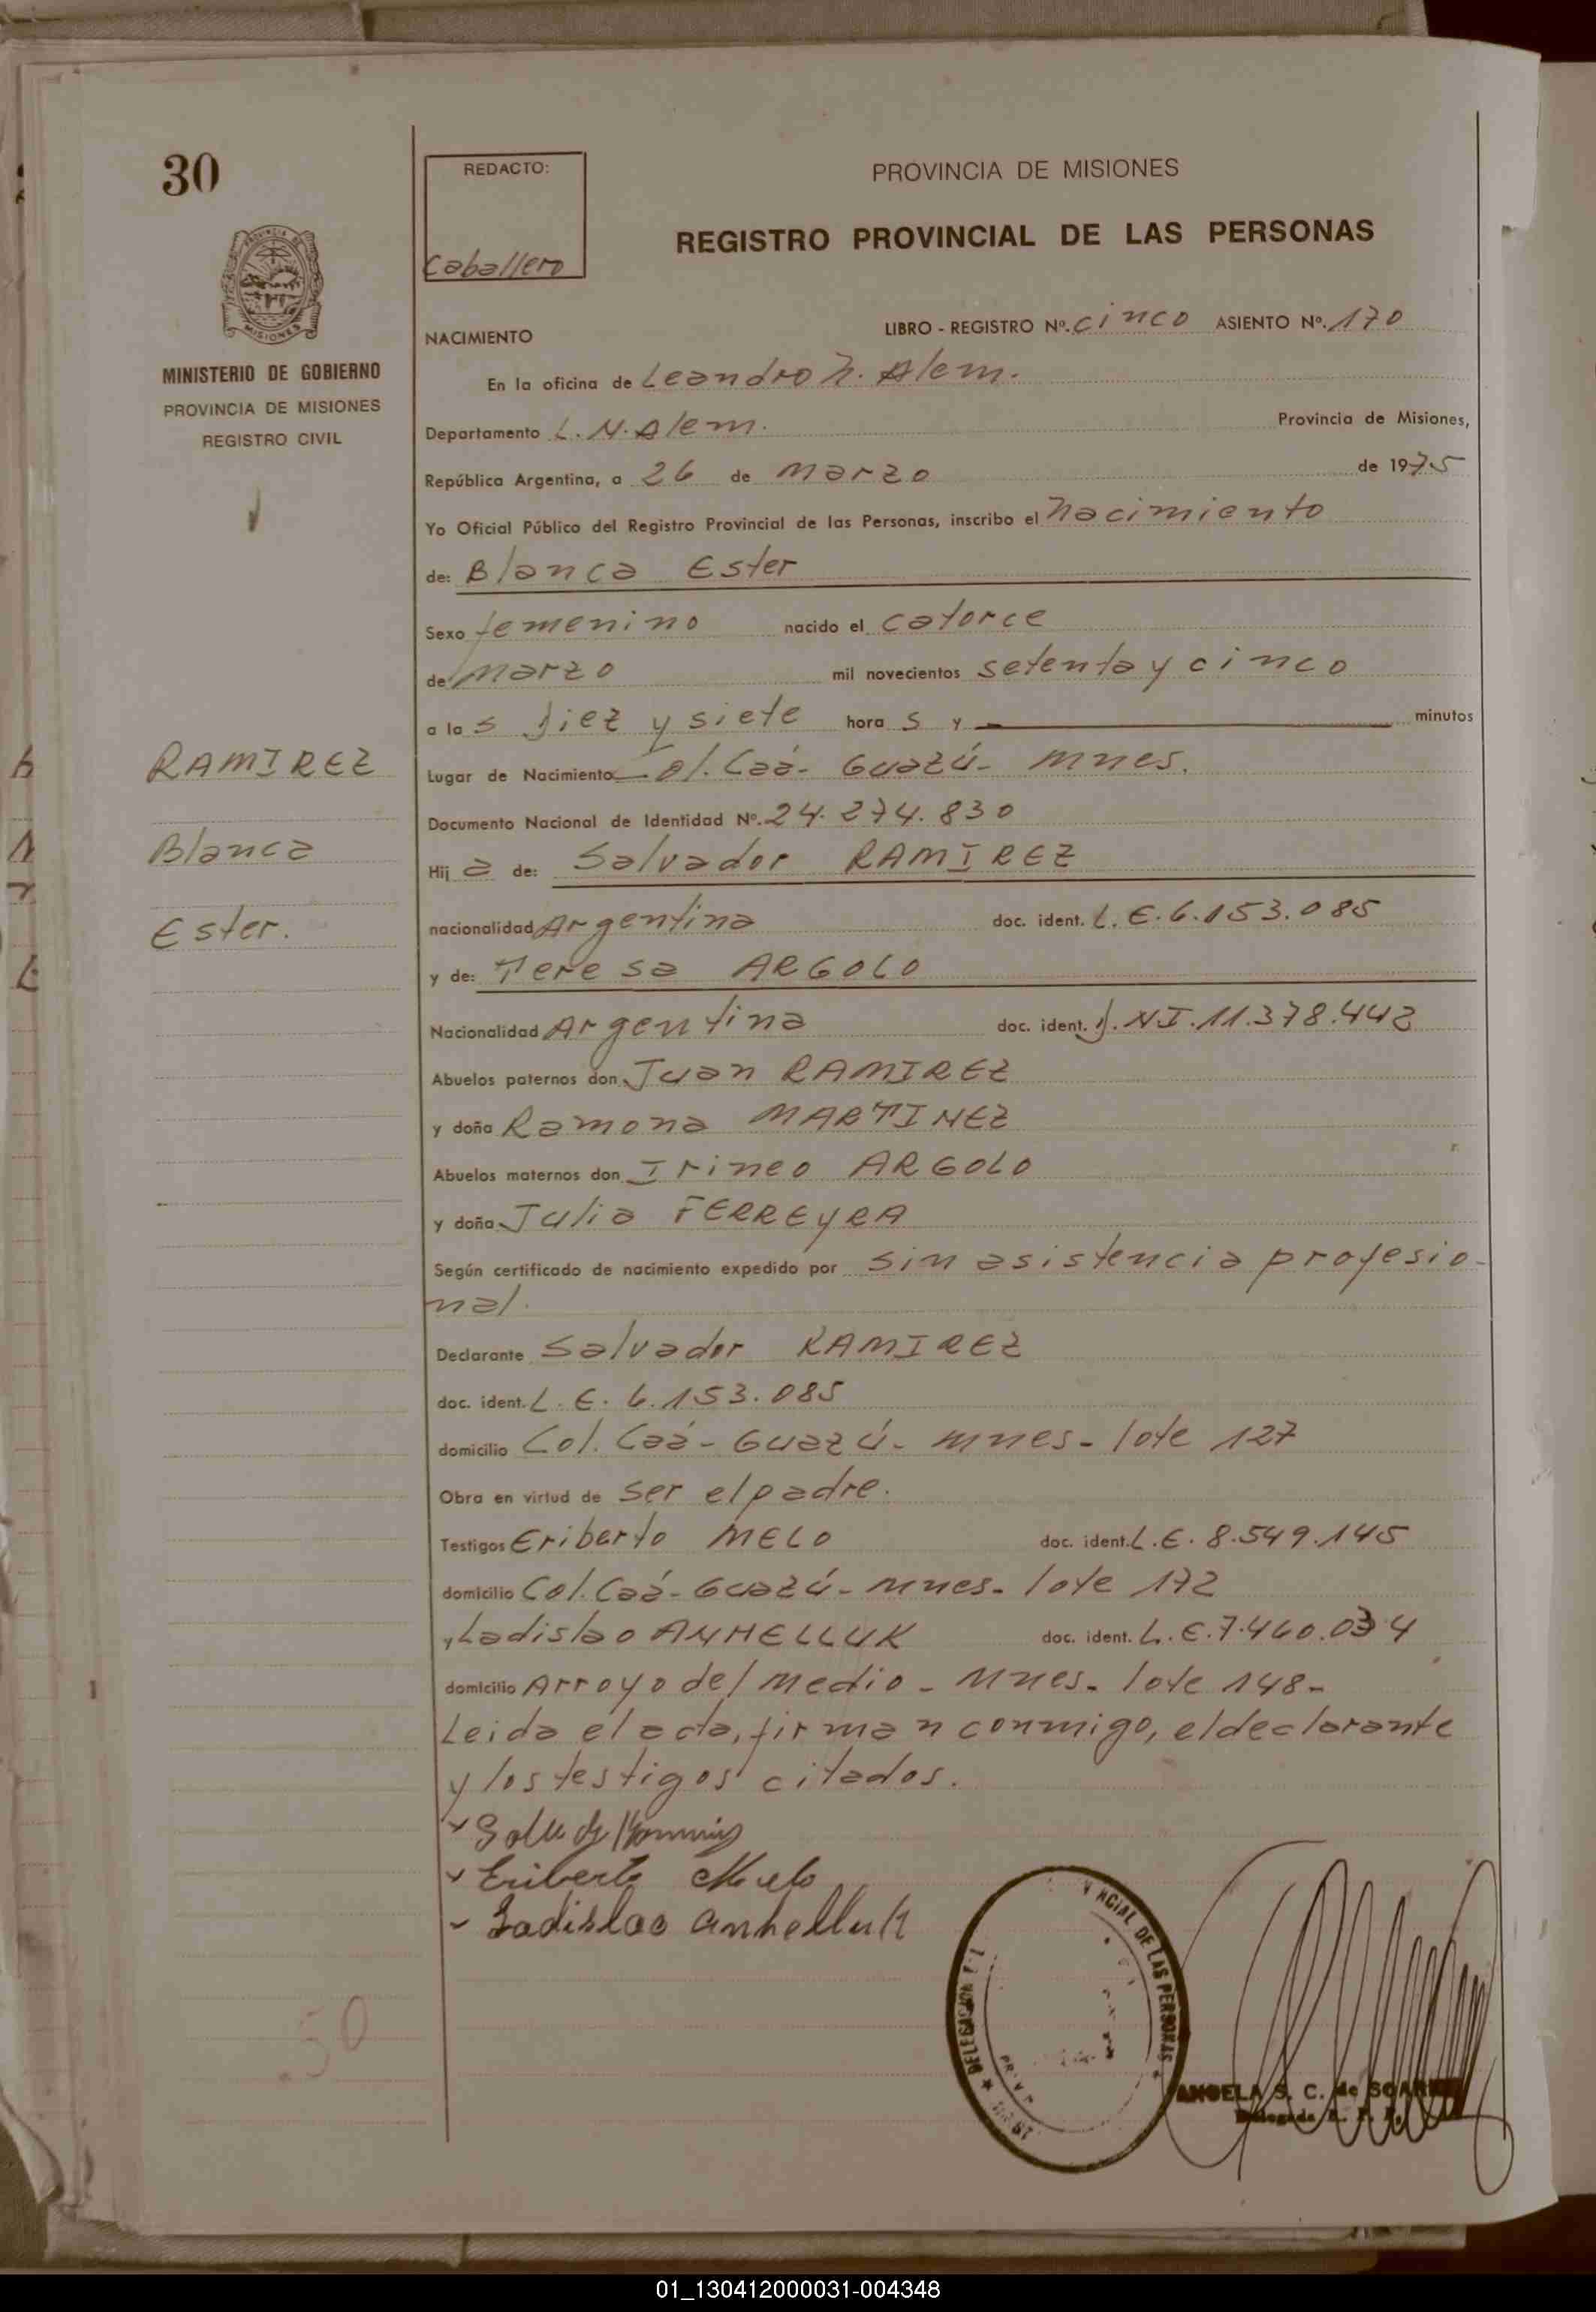 30
REDACTO:
Caballero
PROVINCIA DE MISIONES
REGISTRO PROVINCIAL DE LAS PERSONAS
PROVINCIA DE
MISIONES
MINISTERIO DE GOBIERNO
PROVINCIA DE MISIONES
REGISTRO CIVIL
NACIMIENTO
LIBRO - REGISTRO Nº. cinco ASIENTO Nº. 170
En la oficina de Leandro N. Alem.
Departamento L. N. Alem. Provincia de Misiones,
República Argentina, a 26 de marzo de 1975
Yo Oficial Público del Registro Provincial de las Personas, inscribo el nacimiento
de: Blanca Ester
Sexo femenino nacido el catorce
de marzo mil novecientos setenta y cinco
a las diez y siete horas y — minutos
RAMIREZ
Blanca
Ester.
Lugar de Nacimiento Col. Caá-Guazú- Mnes.
Documento Nacional de Identidad Nº. 24.274.830
Hija de: Salvador RAMIREZ
nacionalidad Argentina doc. ident. L.E. 6.153.085
y de: Teresa ARGOLO
Nacionalidad Argentina doc. ident. D.N.I. 11.378.442
Abuelos paternos don Juan RAMIREZ
y doña Ramona MARTINEZ
Abuelos maternos don Irineo ARGOLO
y doña Julia FERREYRA
Según certificado de nacimiento expedido por sin asistencia profesio-
nal.
Declarante Salvador RAMIREZ
doc. ident. L.E. 6.153.085
domicilio Col. Caá-Guazú- Mnes- lote 127
Obra en virtud de ser el padre.
Testigos Eriberto MELO doc. ident. L.E. 8.549.145
domicilio Col. Caá-Guazú- Mnes- lote 172
y Ladislao ANHELLUK doc. ident. L.E. 7.460.034
domicilio Arroyo del Medio - Mnes- lote 148-
Leida el acta, firman conmigo, el declarante
y los testigos citados.
Eriberto Melo
Ladislao Anhelluk
50
NCIAL DE LAS PERSONAS
ANGELA S. C. de
Delegada
01_130412000031-004348